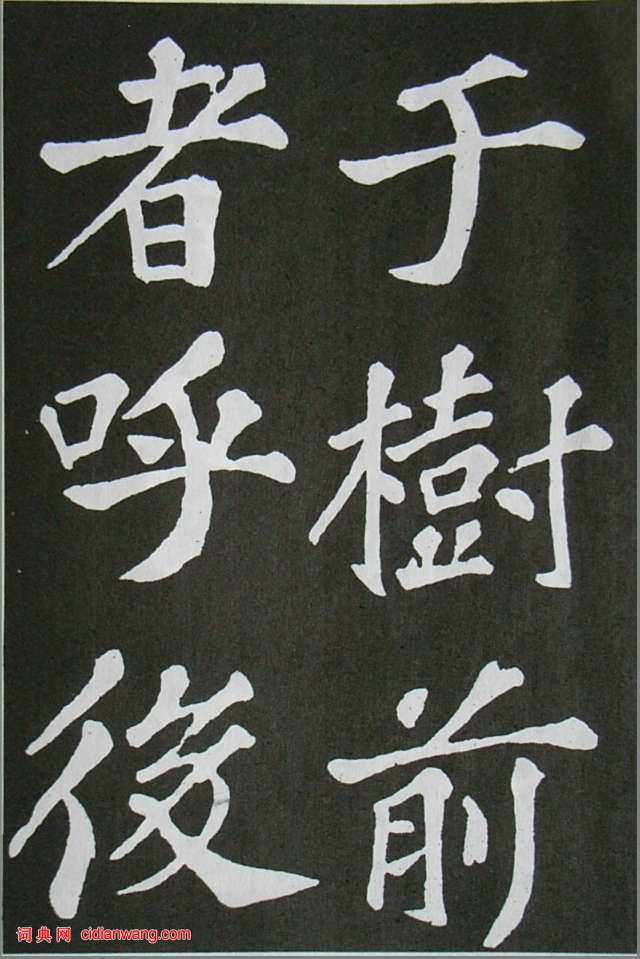 于樹前
者呼後
词典网 cidianwang.com